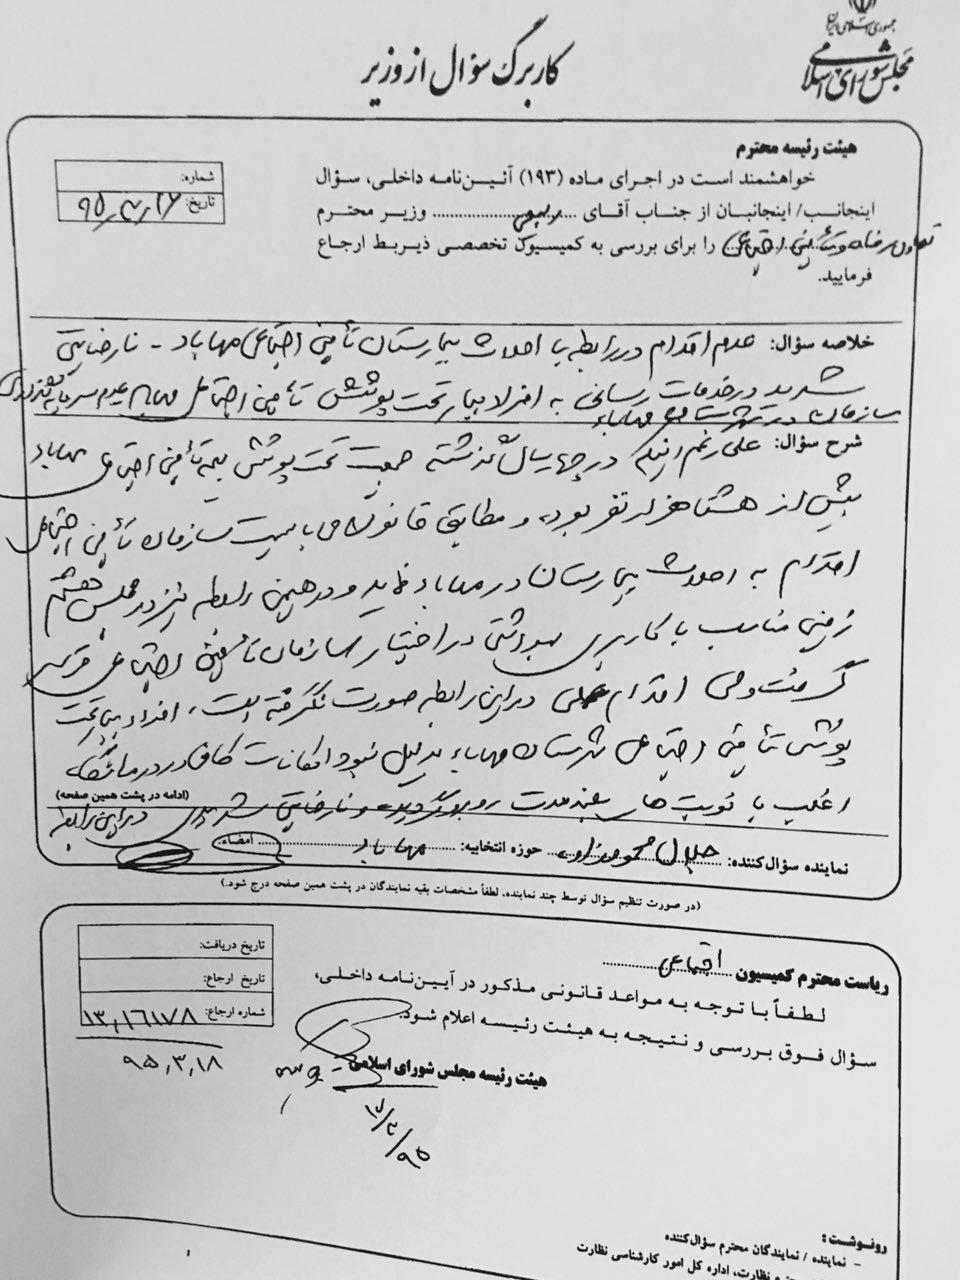 جمهوری اسلامی ایران
مجلس شورای اسلامی
کاربرگ سؤال از وزیر
هیئت رئیسه محترم
شماره:
تاریخ:
خواهشمند است در اجرای ماده (۱۹۳) آئین‌نامه داخلی، سؤال
اینجانب/ اینجانبان از جناب آقای ربیعی وزیر محترم
تعاون رفاه و تأمین اجتماعی را برای بررسی به کمیسیون تخصصی ذیربط ارجاع
فرمایید.
خلاصه سؤال: عدم اقدام در رابطه با احداث بیمارستان تأمین اجتماعی مهاباد - نارضایتی
شدید در خدمات رسانی به افراد بیمار تحت پوشش تأمین اجتماعی مهاباد عدم سرمایه گذاری
سازمان در شهرستان مهاباد
شرح سؤال: علی رغم اینکه در چهار سال گذشته جمعیت تحت پوشش بیمه تأمین اجتماعی مهاباد
بیش از هشتاد هزار نفر بوده و مطابق قانون می بایست سازمان تأمین اجتماعی
اقدام به احداث بیمارستان در مهاباد نماید و در همین رابطه نیز در مجلس هشتم
زمینی مناسب با کاربری بهداشتی در اختیار سازمان تأمین اجتماعی قرار
گرفت ولی اقدام عملی در این رابطه صورت نگرفته است، افراد بیمار تحت
پوشش تأمین اجتماعی شهرستان مهاباد بدلیل نبود امکانات کافی در درمانگاه
اغلب با نوبت های بلند مدت روبرو گردیده و نارضایتی شدیدی در این رابطه
(ادامه در پشت همین صفحه)
نماینده سؤال‌کننده: جلال محمودزاده حوزه انتخابیه: مهاباد امضاء:
(در صورت تنظیم سؤال توسط چند نماینده، لطفاً مشخصات بقیه نمایندگان در پشت همین صفحه درج شود.)
ریاست محترم کمیسیون اجتماعی
تاریخ دریافت:
تاریخ ارجاع:
شماره ارجاع: ۱۳,۱۶۱۱۷۸
۹۵,۳,۱۸
لطفاً با توجه به مواعد قانونی مذکور در آیین‌نامه داخلی،
سؤال فوق بررسی و نتیجه به هیئت رئیسه اعلام شود.
هیئت رئیسه مجلس شورای اسلامی
رونوشت:
- نماینده / نمایندگان محترم سؤال‌کننده
نظارت، اداره کل امور کارشناسی نظارت